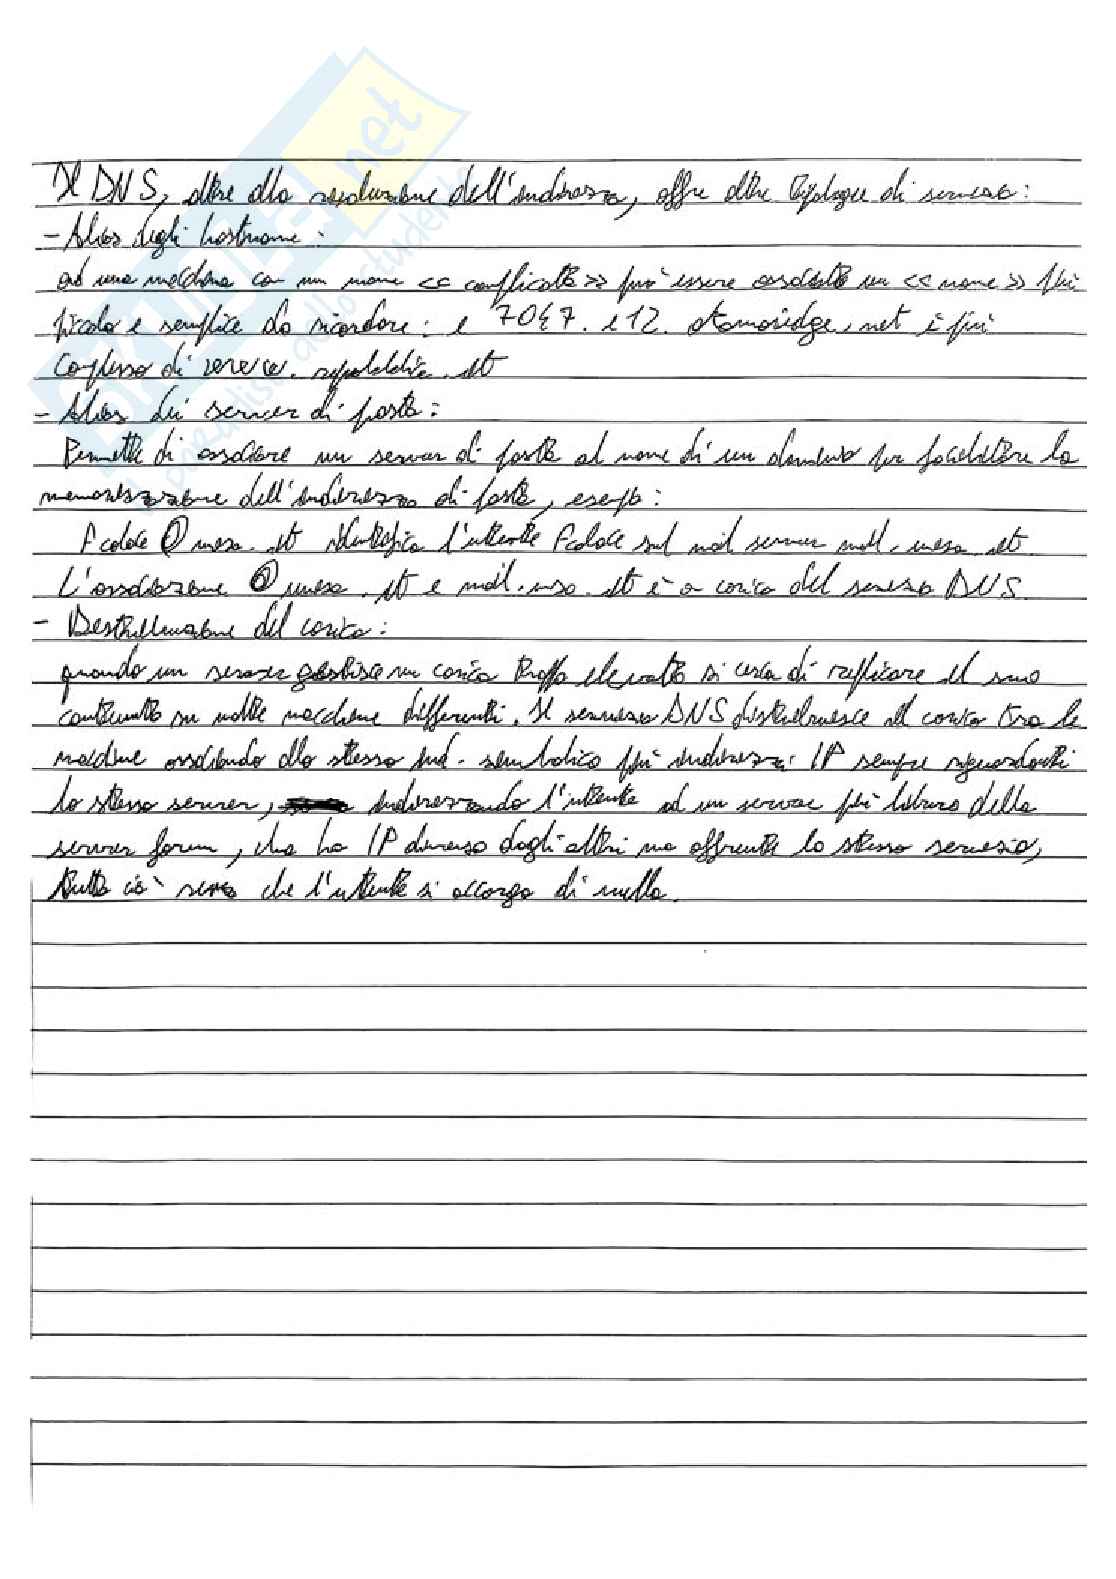 Il DNS, oltre alla risoluzione dell'indirizzo, offre altre tipologie di servizio:
- Alias degli hostname:
ad una macchina con un nome << complicato >> può essere associato un << nome >> più
piccolo e semplice da ricordare: e 7047. e12. akamaiedge.net è più
complesso di www. repubblica. it
- Alias dei server di posta:
Permette di associare un server di posta al nome di un dominio per facilitare la
memorizzazione dell'indirizzo di posta, esempio:
@ unisa. it identifica l'utente sul mail server mail. unisa. it
L'associazione @ unisa. it e mail. unisa. it è a carico del servizio DNS.
- Distribuzione del carico:
quando un server gestisce un carico troppo elevato si cerca di replicare il suo
contenuto su molte macchine differenti. Il servizio DNS distribuisce il carico tra le
macchine associando allo stesso ind. simbolico più indirizzi IP sempre riguardanti
lo stesso server, indirizzando l'utente ad un server più libero della
server farm, che ha IP diverso dagli altri ma offrente lo stesso servizio,
tutto ciò senza che l'utente si accorga di nulla.
SKUOLA.net
il paradiso dello studente